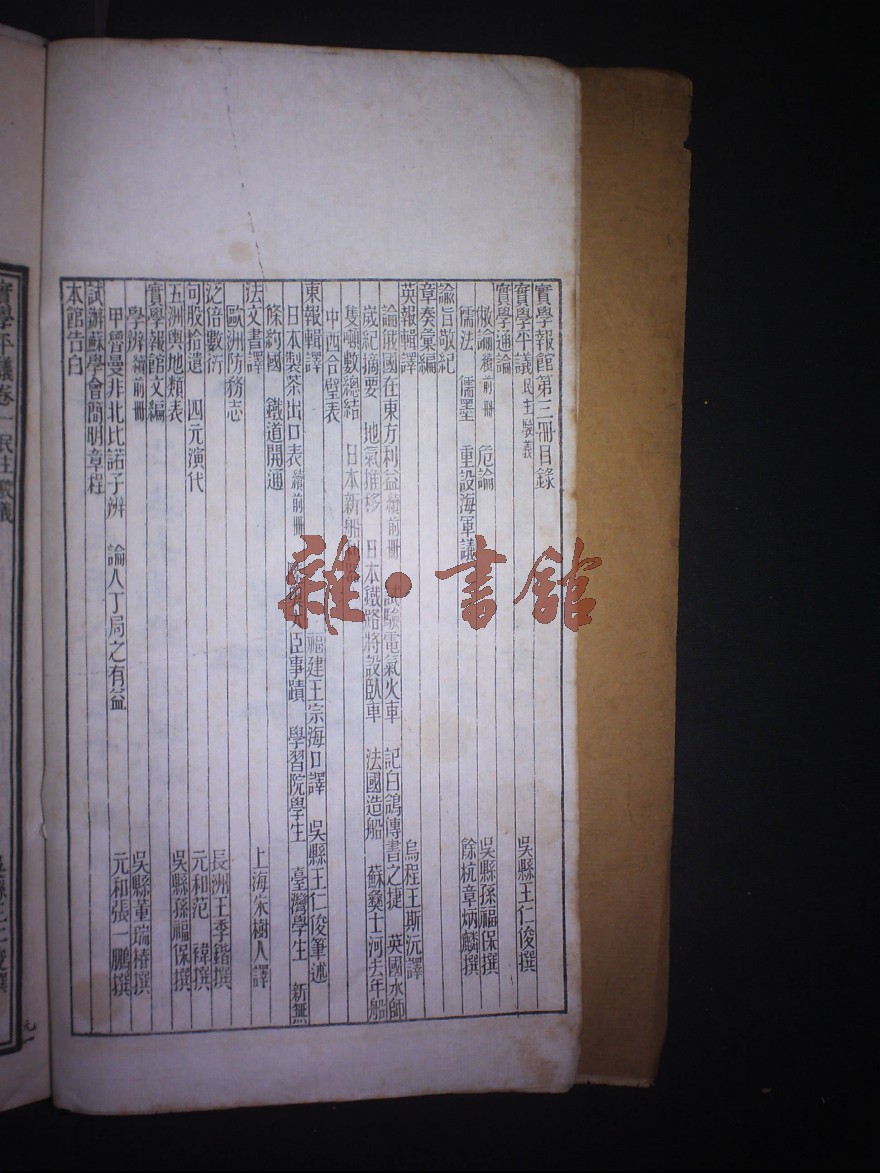 實學報館第三冊目錄
實學平議 民主駁義 吳縣王仁俊撰
實學通論
儆論 續前冊 危論 吳縣孫福保撰
儒法 儒墨 重設海軍議 餘杭章炳麟撰
諭旨敬紀
章奏彙編
英報輯譯 烏程王斯沅譯
論俄國在東方利益 續前冊 試驗電氣火車 記白鴿傳書之捷 英國水師
嵗紀摘要 地氣推移 日本鐵路將設臥車 法國造船 蘇彝士河去年船
隻噸數總結 日本新船
中西合璧表
東報輯譯 福建王宗海口譯 吳縣王仁俊筆述
日本製茶出口表 續前冊 臣事蹟 學習院學生 臺灣學生 新無
條約國 鐵道開通
法文書譯 上海朱樹人譯
歐洲防務志
泛倍數衍 長洲王季鍇撰
句股拾遺 四元演代 元和范禕撰
五洲輿地類表
實學報館文編 吳縣孫福保撰
學辨 續前冊
甲賀曼非北比諾子辨 論人丁局之有益 吳縣董瑞椿撰
元和張一鵬撰
試辦蘇學會簡明章程
本館告白
實學平議卷一 民主駁義
雜·書館